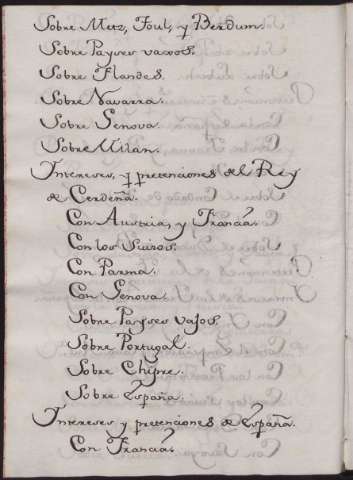 Sobre Metz, Toul, y Berdum.
Sobre Payses vaxos.
Sobre Flandes.
Sobre Navarra.
Sobre Genova.
Sobre Milan.
Intereses, y pretenciones del Rey
de Cerdeña.
Con Austria, y Francia.
Con los Suizos.
Con Parma.
Con Genova.
Sobre Payses vajos.
Sobre Portugal.
Sobre Chipre.
Sobre España.
Intereses y pretenciones de España.
Con Francia.